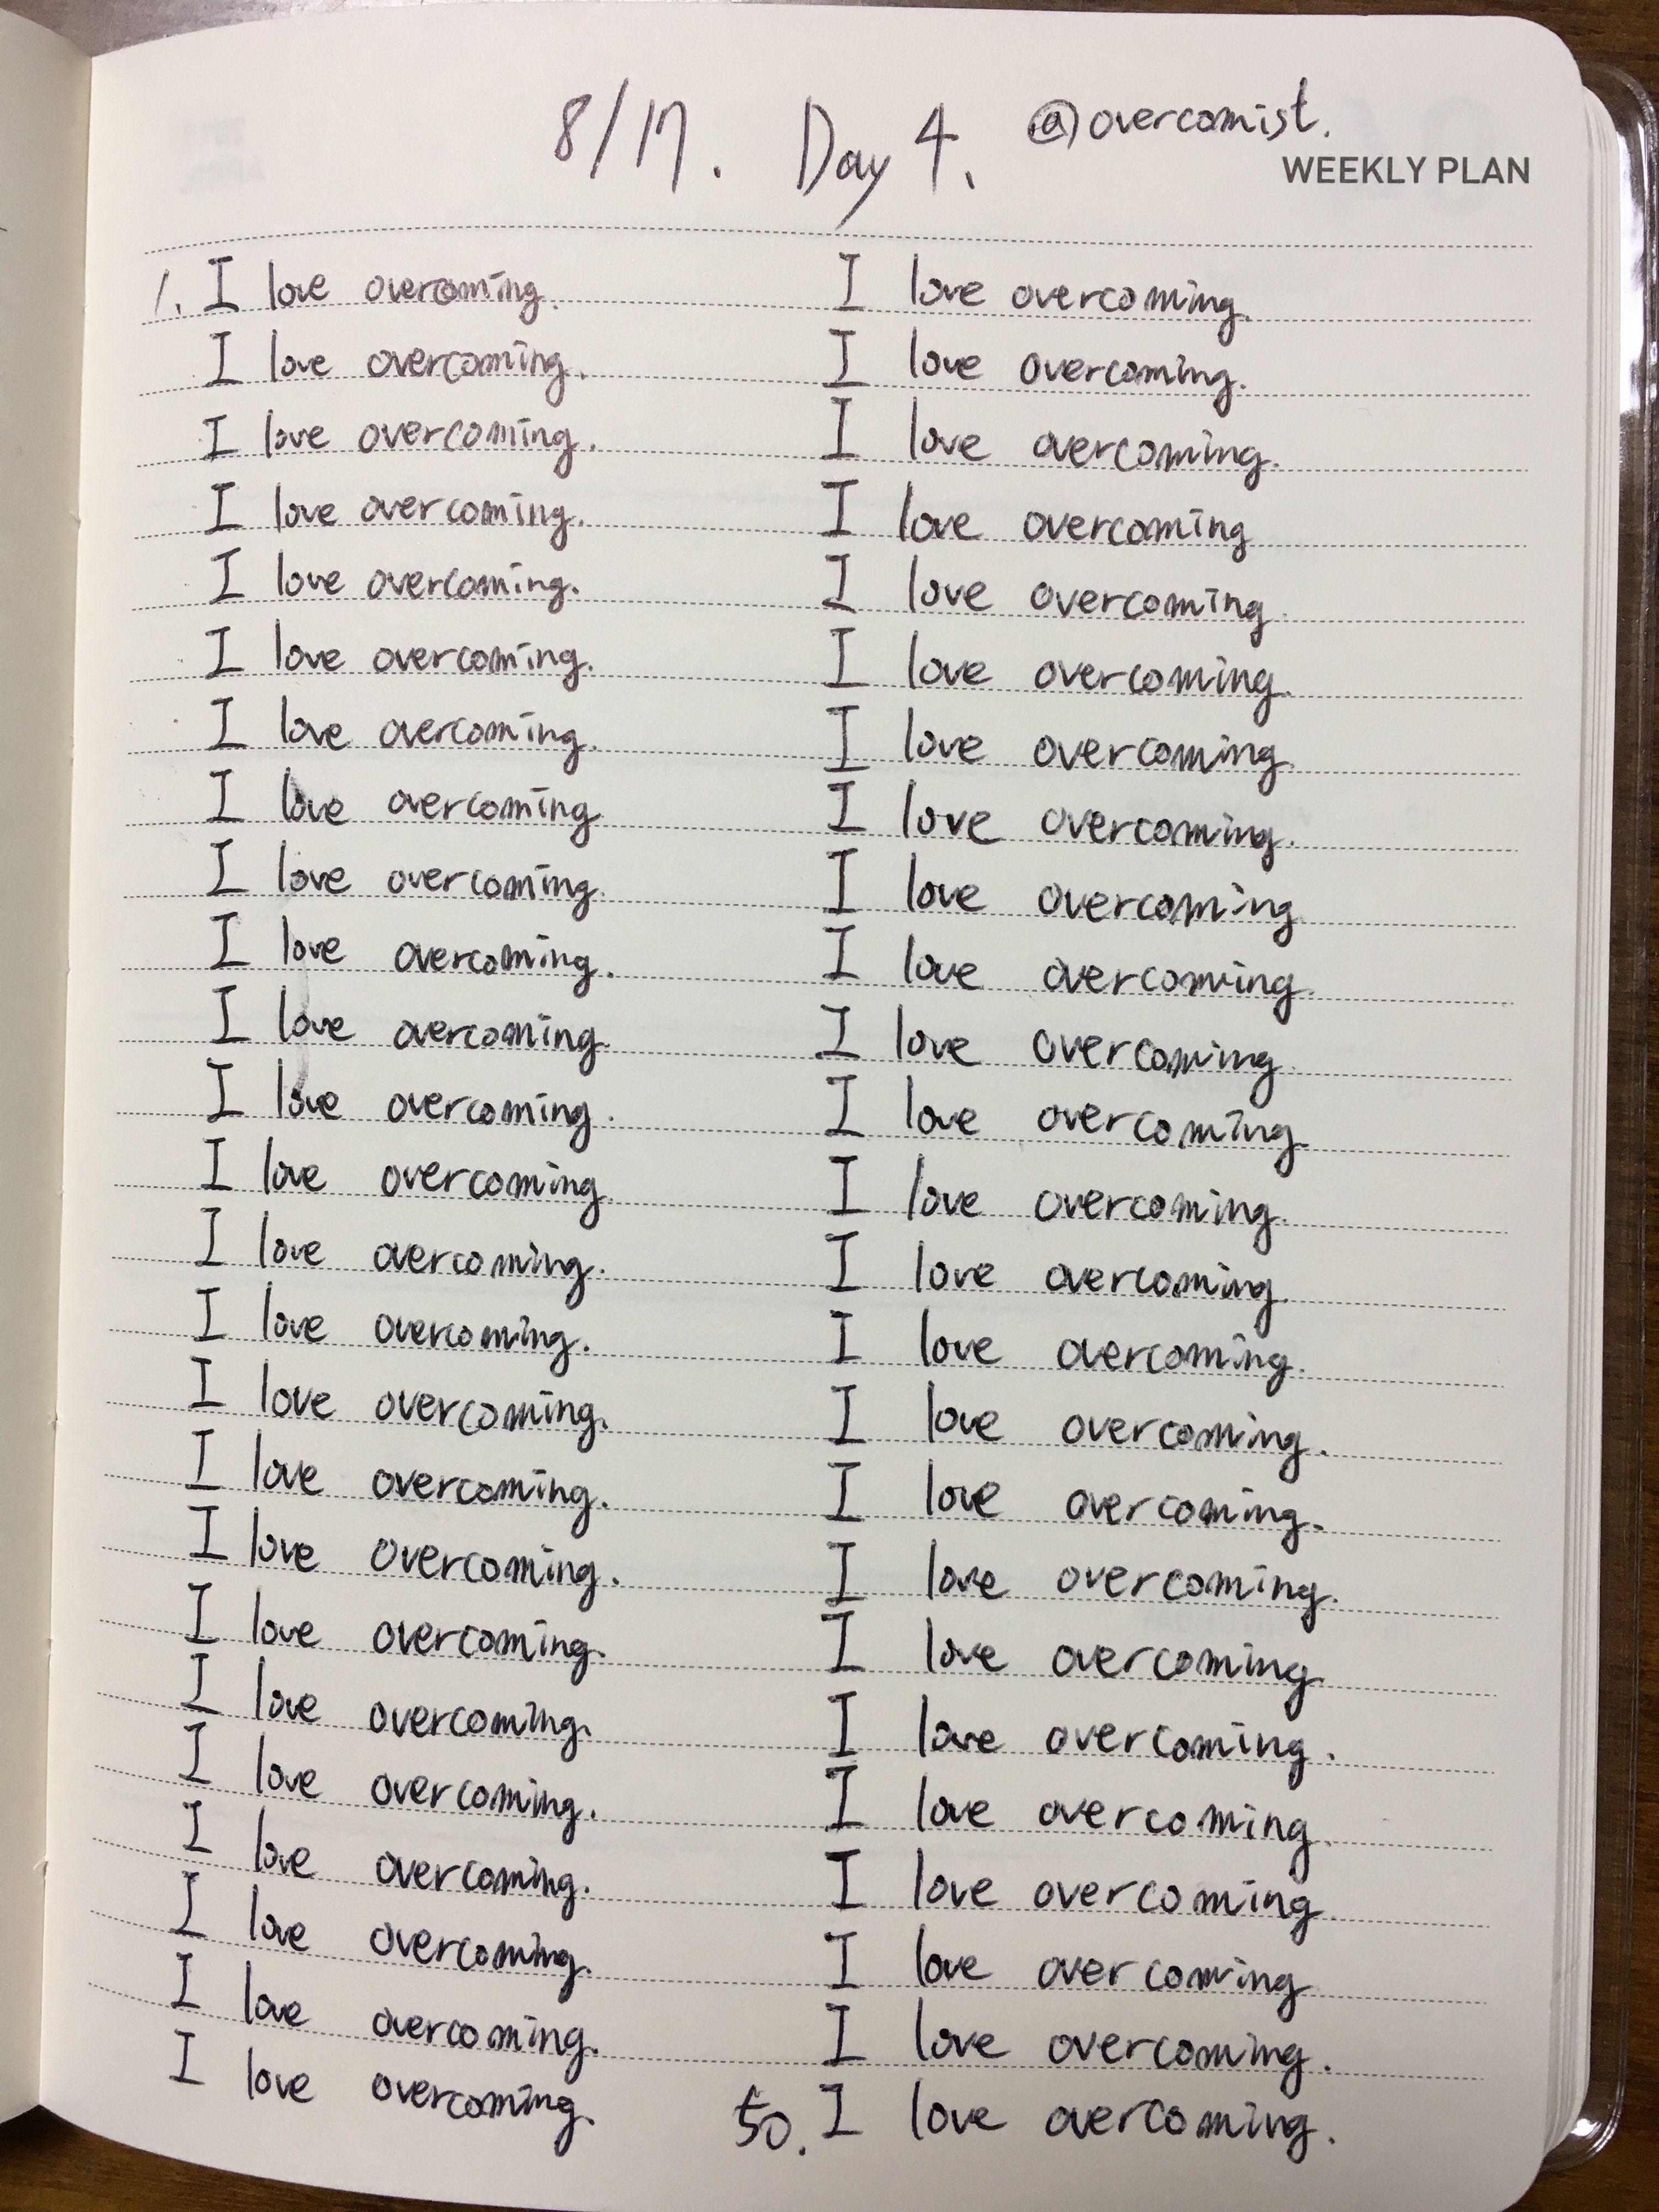 8/17. Day 4. @overcomist.
WEEKLY PLAN
1. I love overcoming.
I love overcoming.
I love overcoming.
I love overcoming.
I love overcoming.
I love overcoming.
I love overcoming.
I love overcoming
I love overcoming.
I love overcoming.
I love overcoming.
I love overcoming.
I love overcoming.
I love overcoming.
I love overcoming.
I love overcoming.
I love overcoming.
I love overcoming.
I love overcoming.
I love overcoming.
I love overcoming.
I love overcoming.
I love overcoming.
I love overcoming.
I love overcoming.
I love overcoming.
I love overcoming.
I love overcoming.
I love overcoming
I love overcoming.
I love overcoming.
I love overcoming.
I love overcoming.
I love overcoming.
I love overcoming.
I love overcoming.
I love overcoming.
I love overcoming.
I love overcoming.
I love overcoming.
I love overcoming.
I love overcoming.
I love overcoming.
I love overcoming.
I love overcoming.
I love overcoming.
I love overcoming.
I love overcoming
I love overcoming.
50. I love overcoming.